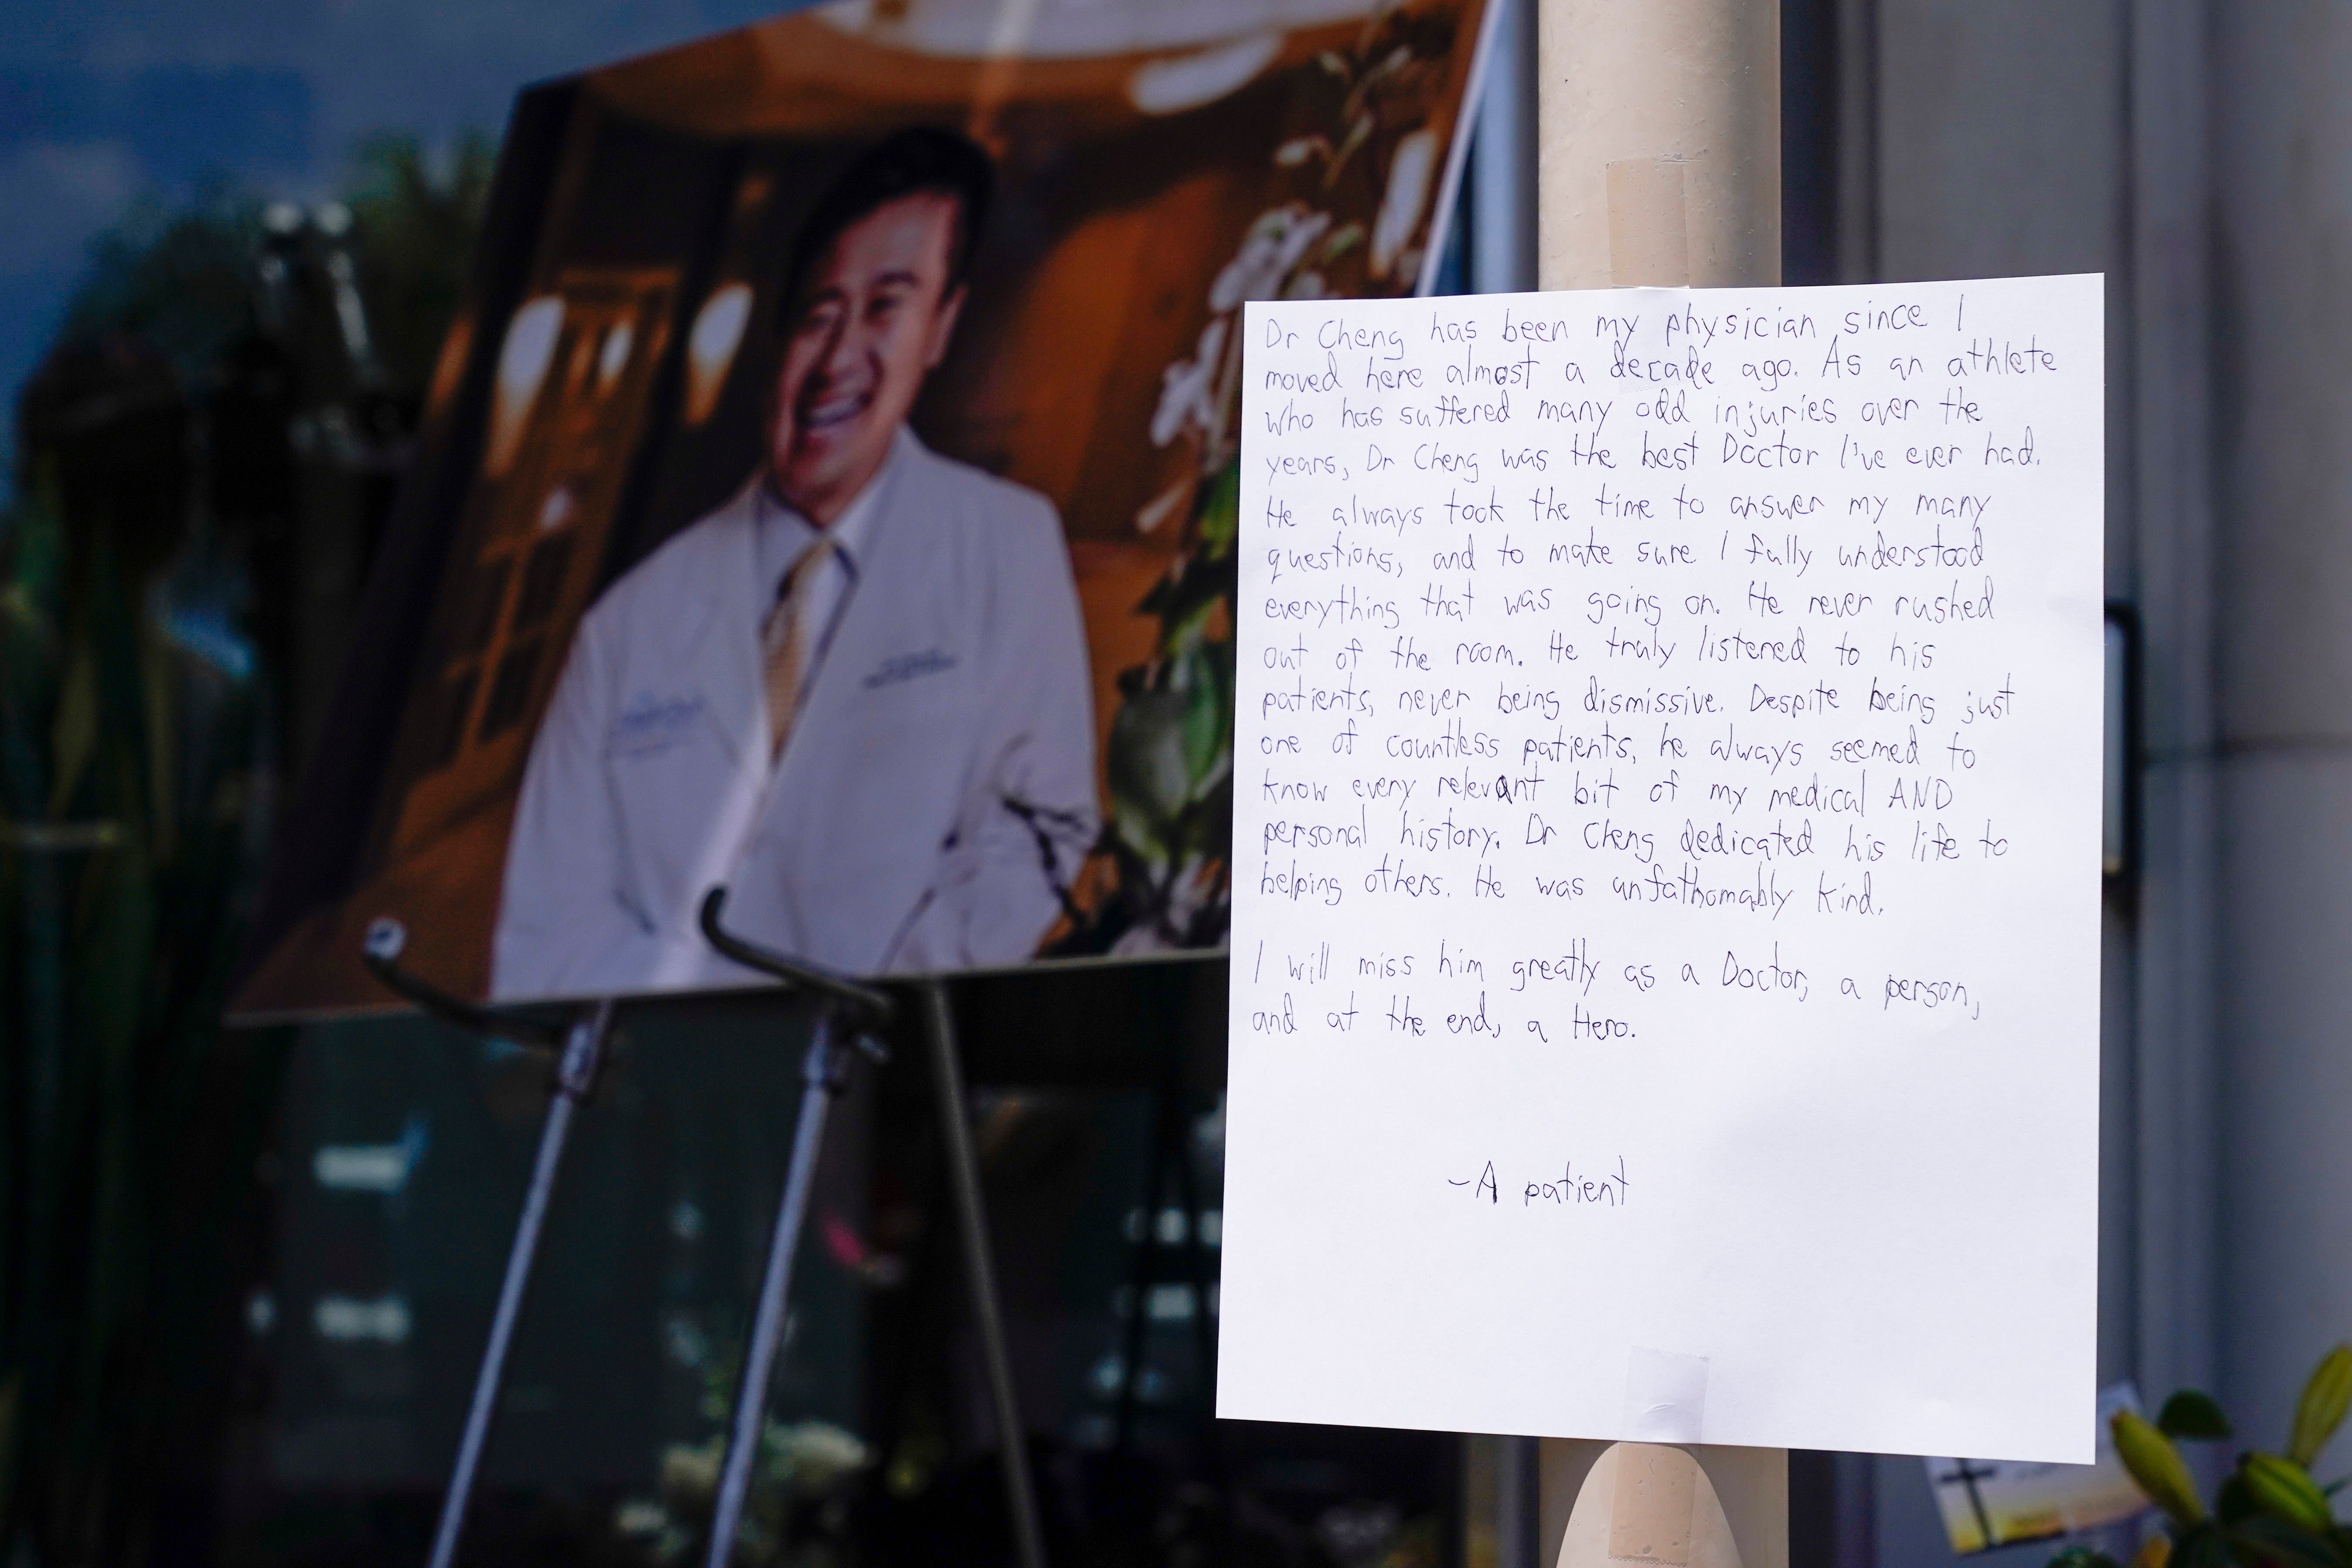 Dr Cheng has been my physician since I
moved here almost a decade ago. As an athlete
who has suffered many odd injuries over the
years, Dr Cheng was the best Doctor I've ever had.
He always took the time to answer my many
questions, and to make sure I fully understood
everything that was going on. He never rushed
out of the room. He truly listened to his
patients, never being dismissive. Despite being just
one of countless patients, he always seemed to
know every relevant bit of my medical AND
personal history. Dr Cheng dedicated his life to
helping others. He was unfathomably kind.
I will miss him greatly as a Doctor, a person,
and at the end, a Hero.
-A patient